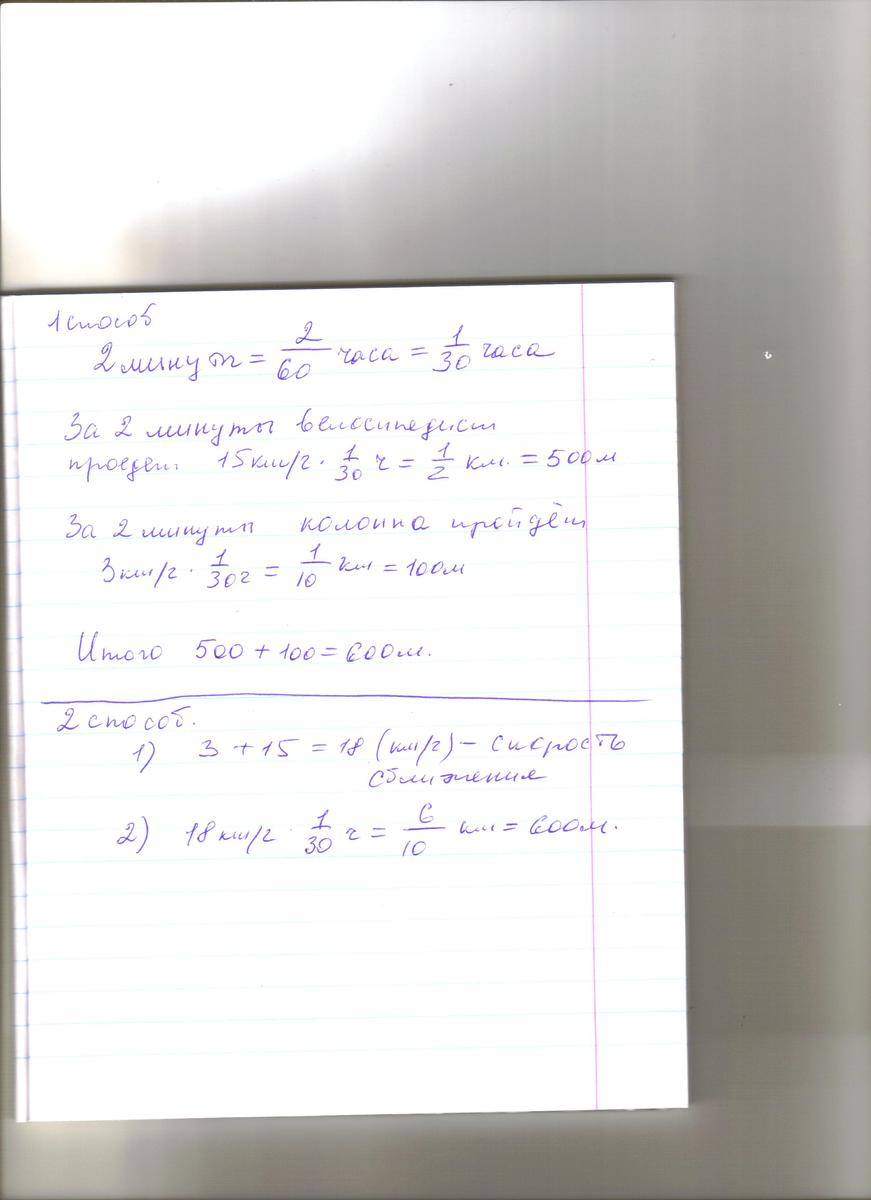 1 способ
2 минуты = 2/60 часа = 1/30 часа
За 2 минуты велосипедист
проедет 15 км/ч · 1/30 ч = 1/2 км. = 500 м
За 2 минуты колонна пройдёт
3 км/ч · 1/30 ч = 1/10 км = 100 м
Итого 500 + 100 = 600 м.
2 способ.
1) 3 + 15 = 18 (км/ч) – скорость
сближения
2) 18 км/ч · 1/30 ч = 6/10 км = 600 м.